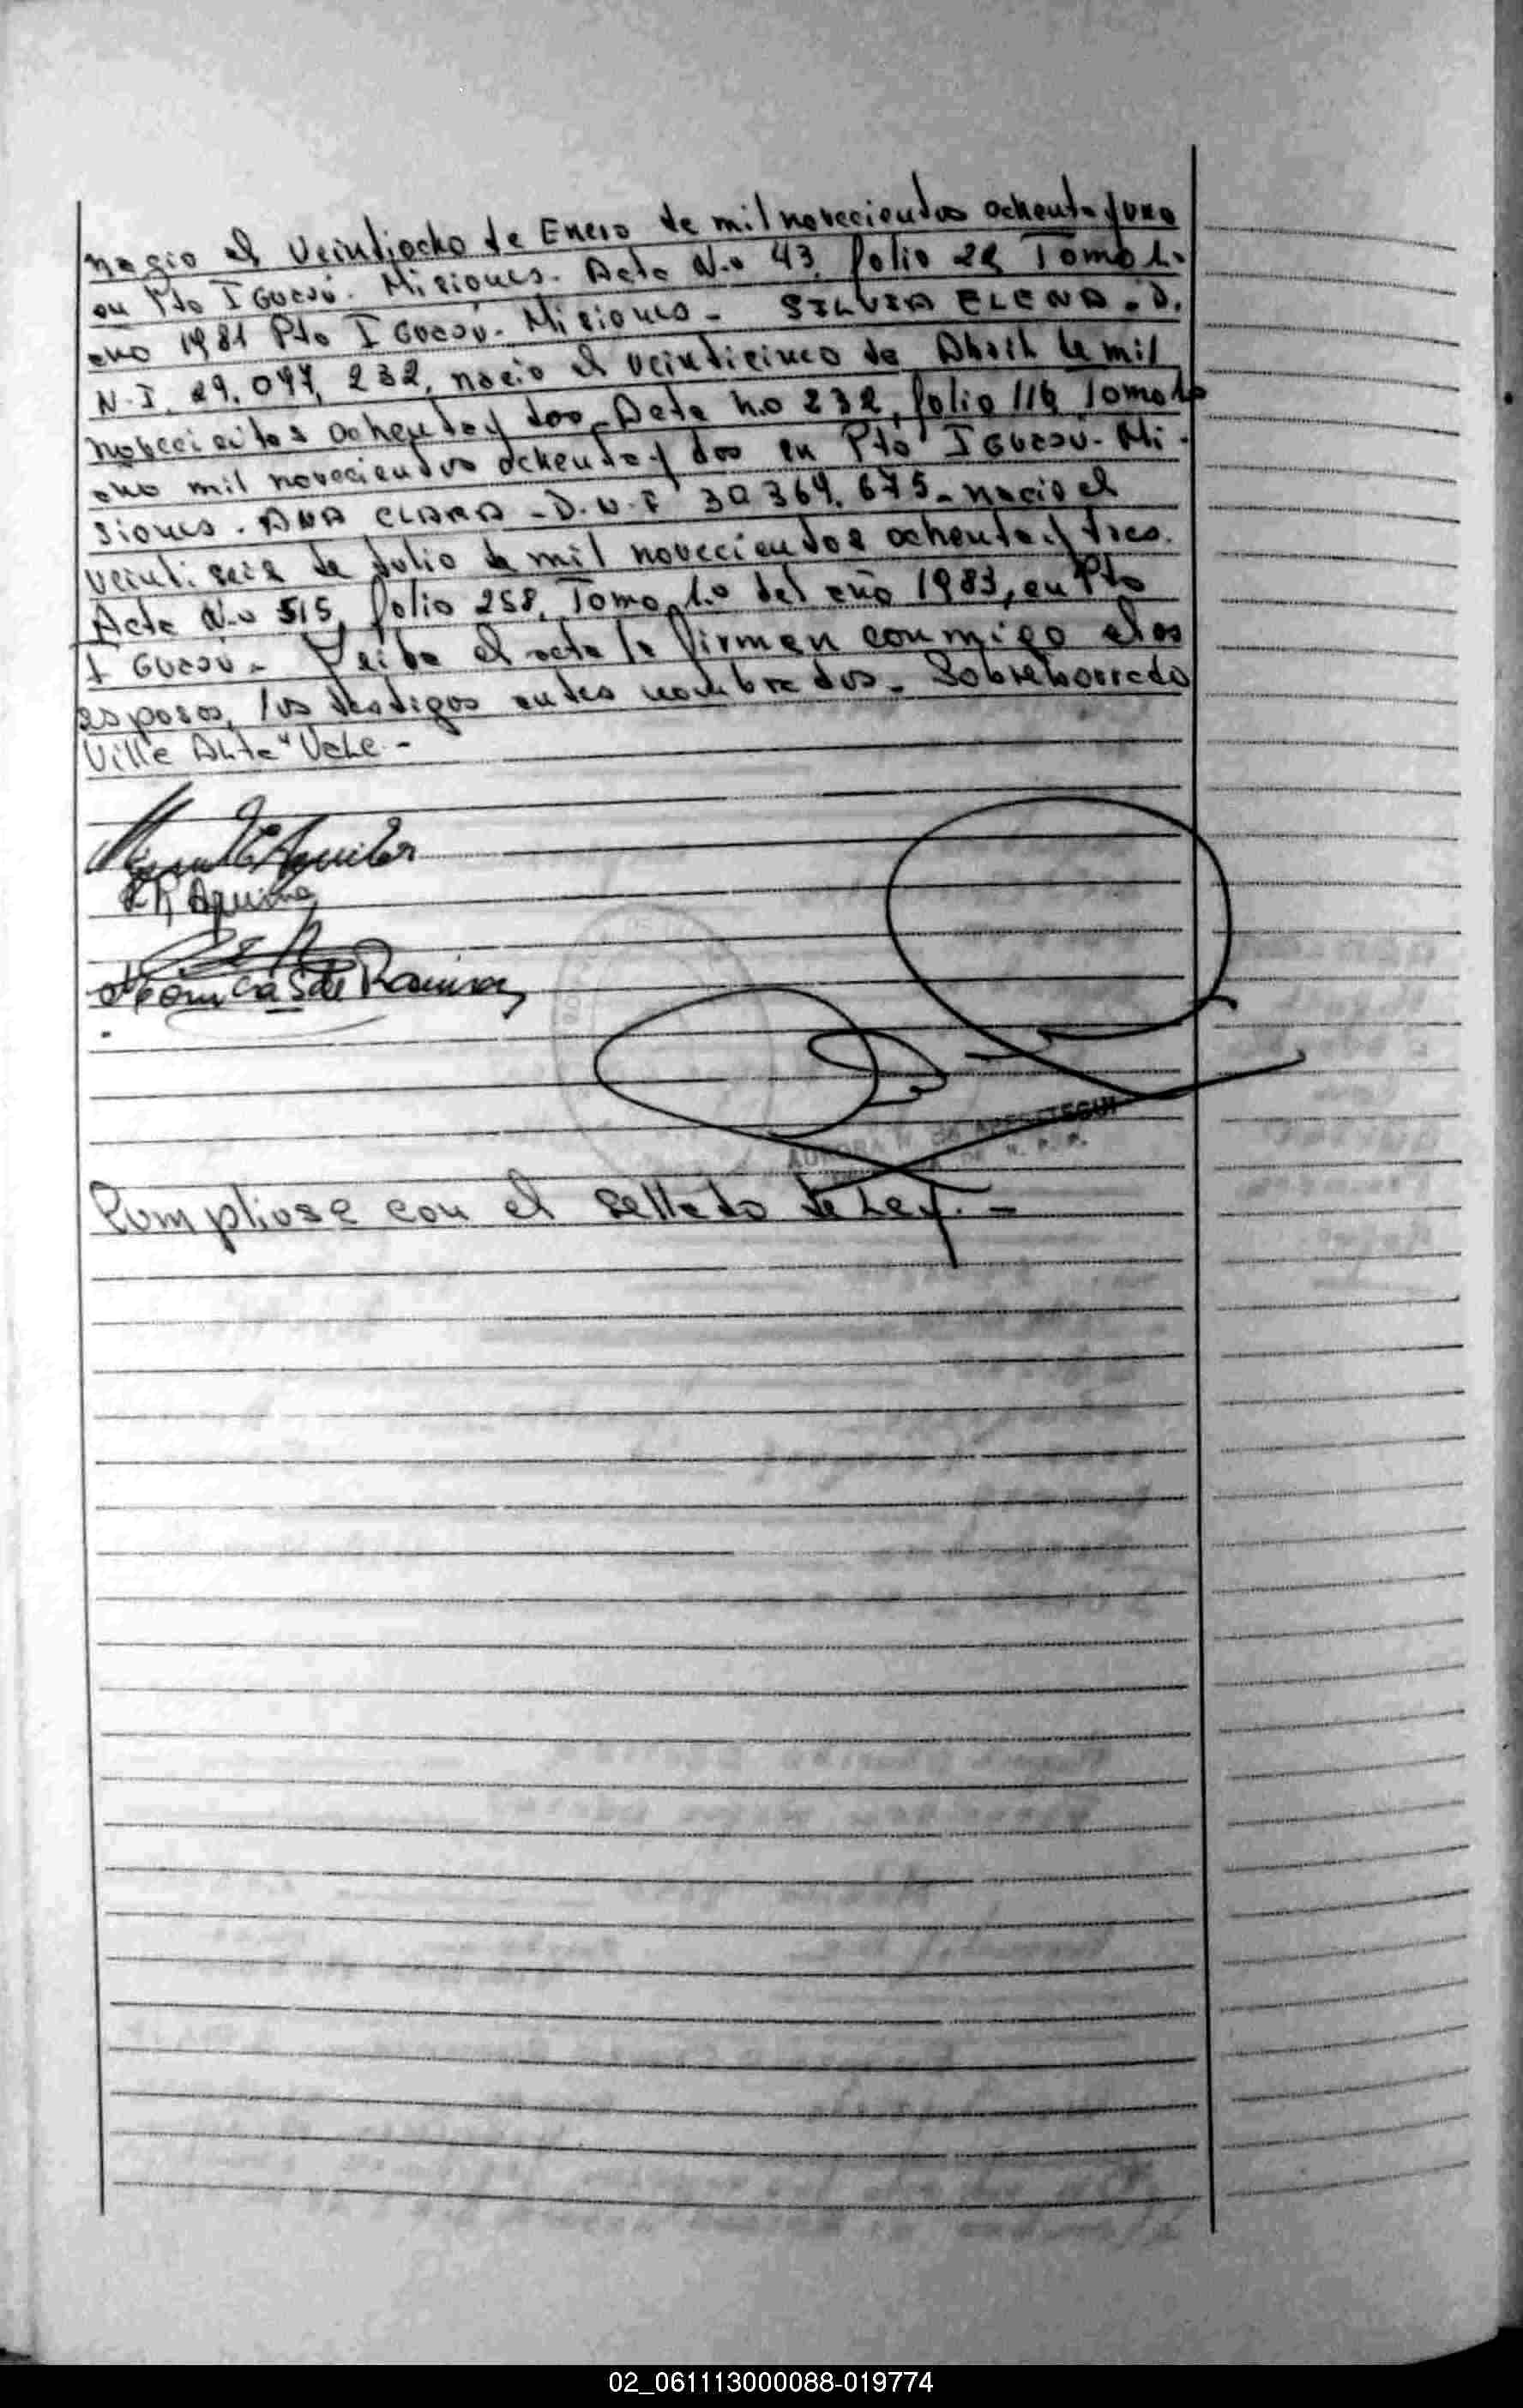 nacio el Veintiocho de Enero de mil novecientos ochenta y uno
en Pto Iguazú. Misiones. Acta N.o 43, folio 22 Tomo 1.o
año 1981 Pto Iguazú. Misiones - SILVIA ELENA. D.
N.I. 29.097,232, nacio el veinticinco de Abril de mil
novecientos ochenta y dos. Acta N.o 232, folio 116 Tomo 1o
año mil novecientos ochenta y dos en Pto Iguazú. Mi-
siones. ANA CLARA - D.N.I 30 364.675 - nacio el
veintiseis de Julio de mil novecientos ochenta y tres.
Acta N.o 515, folio 258, Tomo 1.o del año 1983, en Pto
Iguazú - el acta la firman conmigo los
esposos, los testigos antes nombrados - Sobreborrado
Ville Alta" Vale. -
Aguilar
Aquino
de Ramirez
AURORA DE
Cumpliose con el sellado de Ley. -
02_061113000088-019774